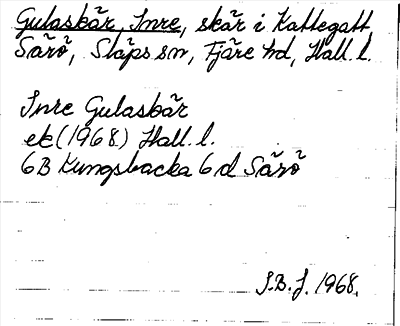 Gulaskär, Inre, skär i Kattegatt
Särö, Släps sn, Fjäre hd, Hall. l.
Inre Gulaskär
ek (1968) Hall. l.
6B Kungsbacka 6 d Särö
S.B.J. 1968.